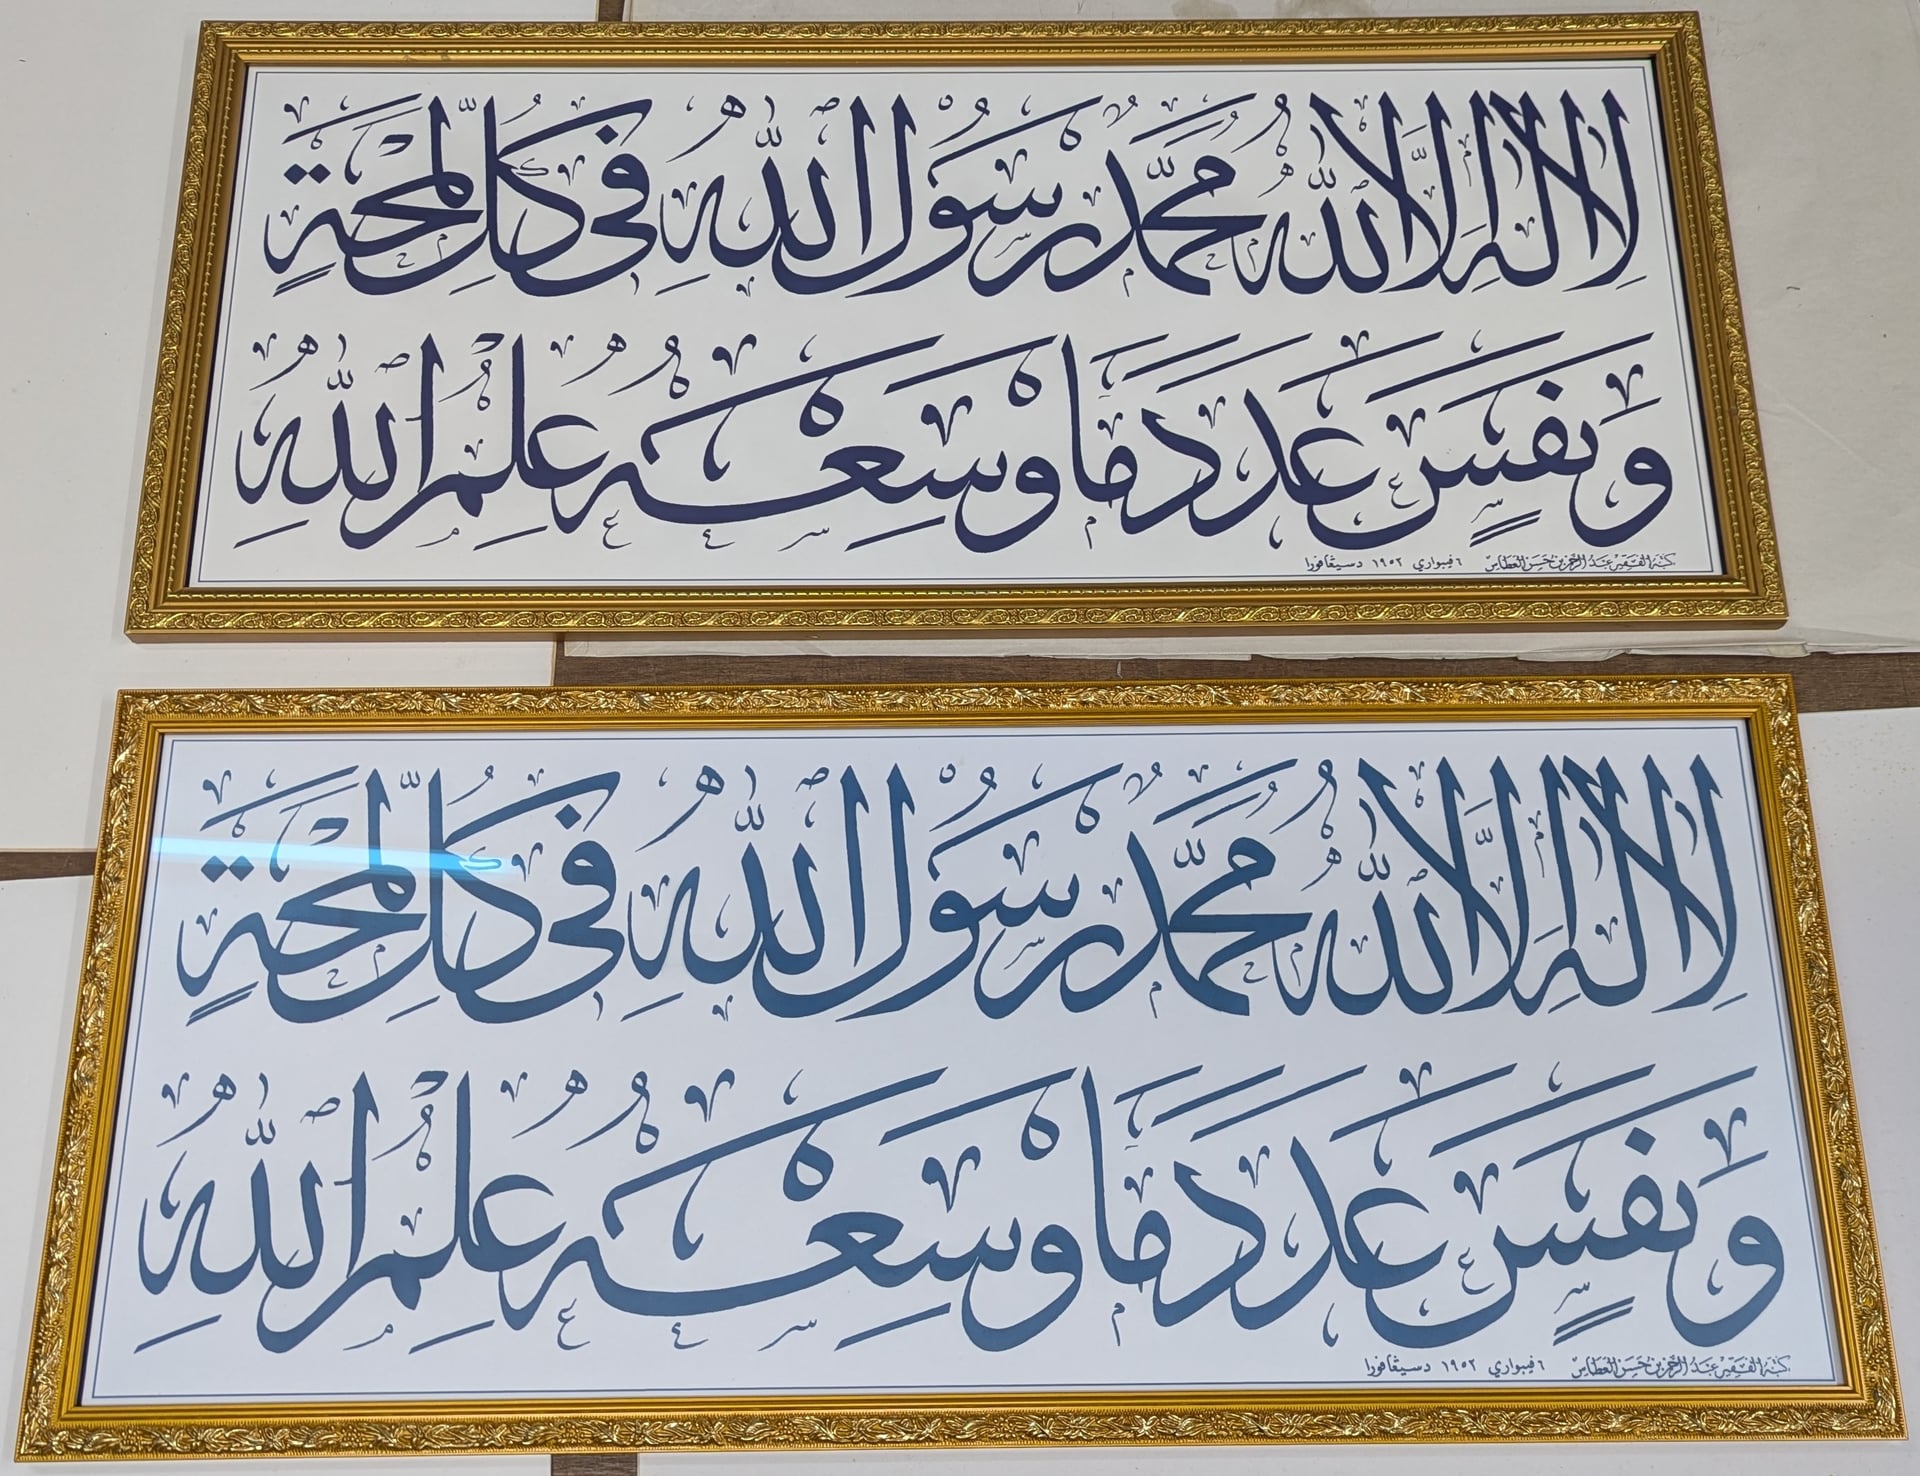 لَا إِلٰهَ إِلَّا اللّٰهُ مُحَمَّدٌ رَسُوْلُ اللّٰهِ فِى كُلِّ لَمْحَةٍ
وَنَفَسٍ عَدَدَ مَا وَسِعَهُ عِلْمُ اللّٰهِ
كتبه الفقير عبد الرحمن بن حسن العطاس ٦ فيبواري ١٩٥٢ دسيڠافورا
لَا إِلٰهَ إِلَّا اللّٰهُ مُحَمَّدٌ رَسُوْلُ اللّٰهِ فِى كُلِّ لَمْحَةٍ
وَنَفَسٍ عَدَدَ مَا وَسِعَهُ عِلْمُ اللّٰهِ
كتبه الفقير عبد الرحمن بن حسن العطاس ٦ فيبواري ١٩٥٢ دسيڠافورا